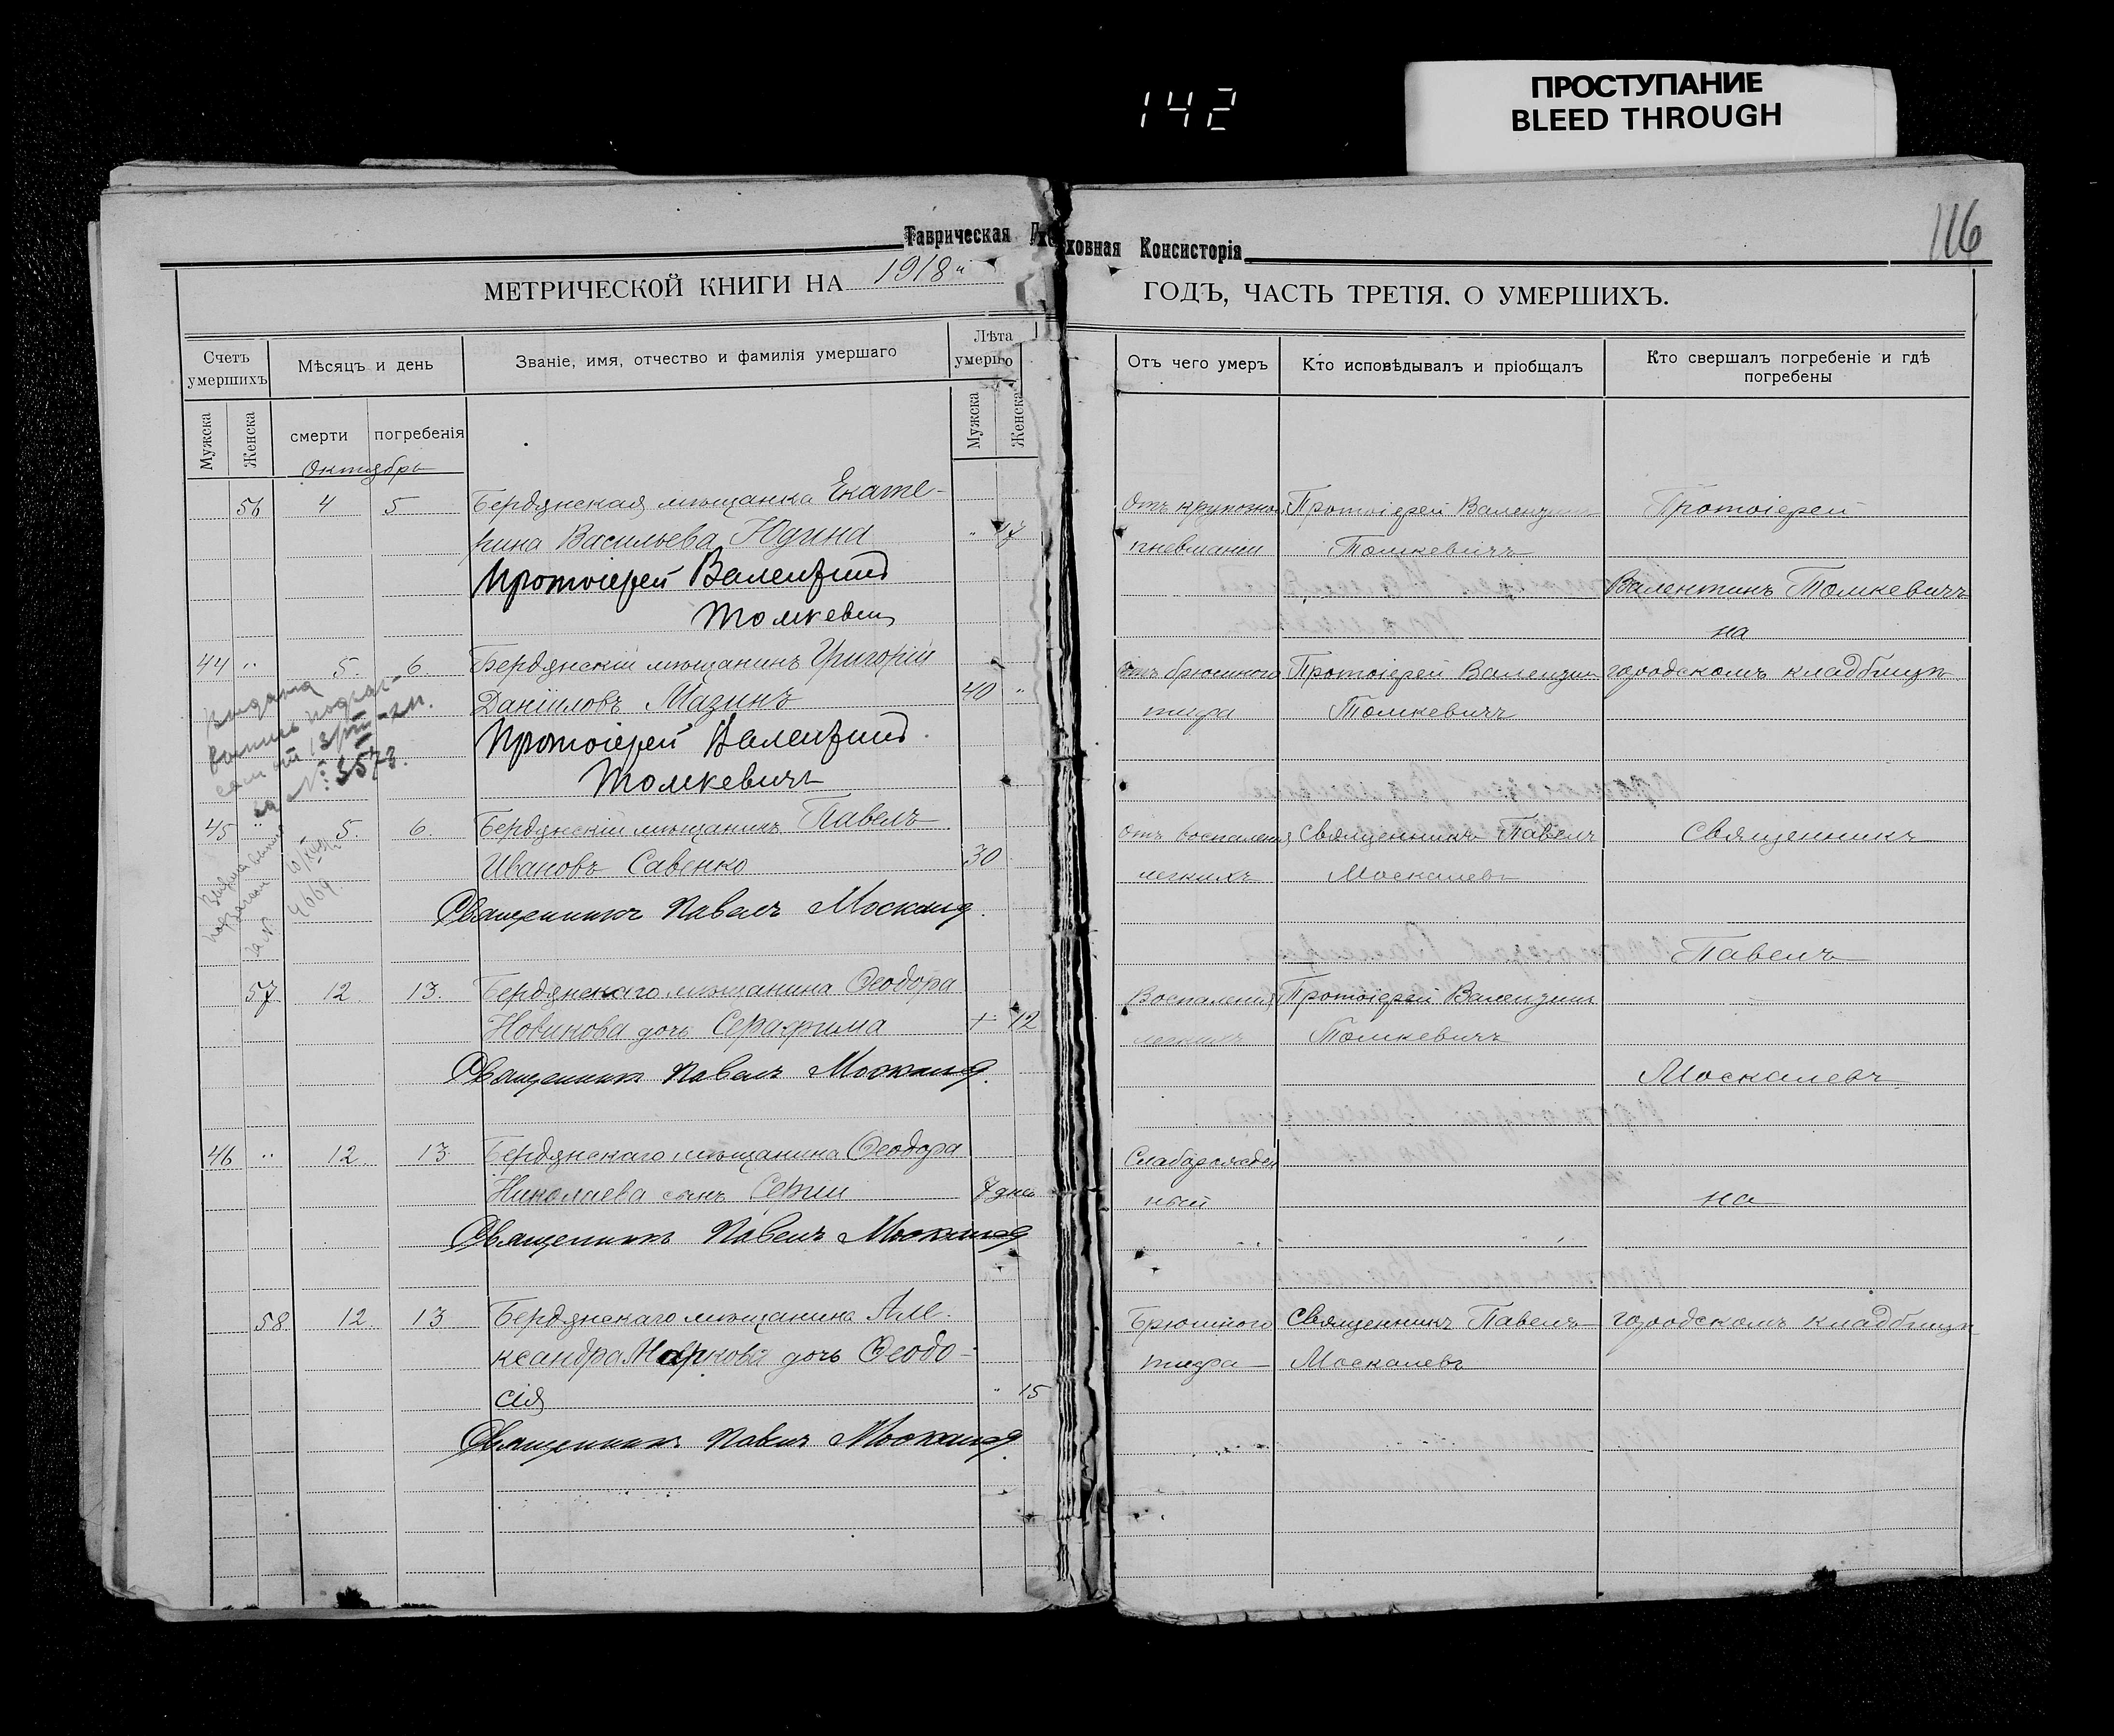 142
ПРОСТУПАНИЕ
BLEED THROUGH
116
Таврическая Духовная Консисторія
МЕТРИЧЕСКОЙ КНИГИ НА 1918 й
ГОДЪ, ЧАСТЬ ТРЕТІЯ. О УМЕРШИХЪ.
Счетъ умершихъ
Мѣсяцъ и день
Званіе, имя, отчество и фамилія умершаго
Лѣта умершо
Отъ чего умеръ
Кто исповѣдывалъ и пріобщалъ
Кто свершалъ погребеніе и гдѣ погребены
Мужска
Женска
смерти
погребенія
Мужска
Женска
Октябрь
56 4 5 Бердянская мѣщанка Екате-
рина Васильева Юдина
Протоіерей Валентинъ
Томкевичъ
Отъ крупозной Протоіерей Валентинъ Протоіерей
пневманіи Томкевичъ
Валентинъ Томкевичъ
на
44 " 5. 6. Бердянскій мѣщанинъ Григорій
Даніиловъ Мазинъ 40 "
Протоіерей Валентинъ
Томкевичъ
Отъ брюшного Протоіерей Валентинъ городскомъ кладбищѣ
тифа Томкевичъ
№ 3573.
45 " 5. 6. Бердянскій мѣщанинъ Павелъ
Ивановъ Савенко 30
Священникъ Павелъ Москалев
Отъ воспаленія Священникъ Павелъ Священникъ
легкихъ Москалевъ
Павелъ
за №
57 12 13. Бердянскаго мѣщанина Ѳеодора
Новикова дочь Серафима + 12
Священникъ Павелъ Москалев
Воспаленія Протоіерей Валентинъ
легкихъ Томкевичъ
Москалевъ
46 " 12 13 Бердянскаго мѣщанина Ѳеодора
Николаева сынъ Сергій 7 дней
Священникъ Павелъ Москалев
Слаборожден
ный на
58 12 13 Бердянскаго мѣщанина Але-
ксандра Маркова дочь Ѳеодо-
сія " 15
Священникъ Павелъ Москалев
Брюшного Священникъ Павелъ городскомъ кладбищѣ
тифа Москалевъ